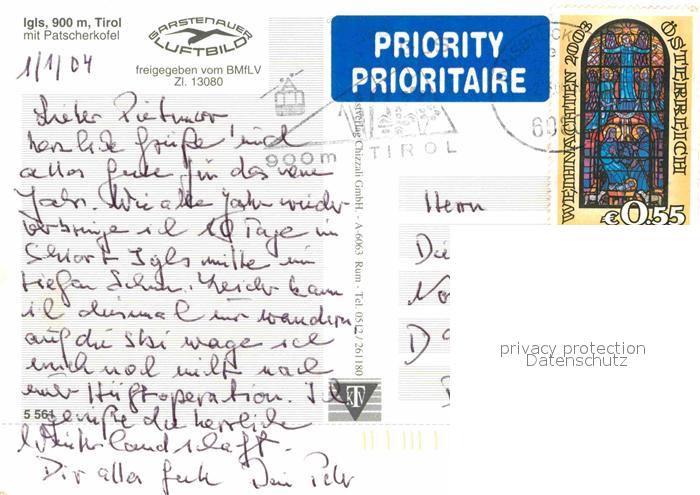 Igls, 900 m, Tirol
mit Patscherkofel
GARSTENAUER
LUFTBILD
freigegeben vom BMfLV
Zl. 13080
1/1/04
PRIORITY
PRIORITAIRE
WEIHNACHTEN 2003
ÖSTERREICH
€0.55
900m
TIROL
Lieber
herzliche Grüße und
alles Gute für das neue
Jahr. Wie alle Jahr wieder
verbringe ich 10 Tage im
Schiort Igls mitten im
tiefen Schnee. Leider kann
ich diesmal nur wandern
auf die Ski wage ich
mich noch nicht nach
Hüftoperation. Ich
genieße die herrliche
Winterlandschaft.
Dir alles Gute Dein Peter
Chizzali GmbH. - A-6063 Rum - Tel. 0512 / 261180
5 561
Herrn
Die
D
privacy protection
Datenschutz